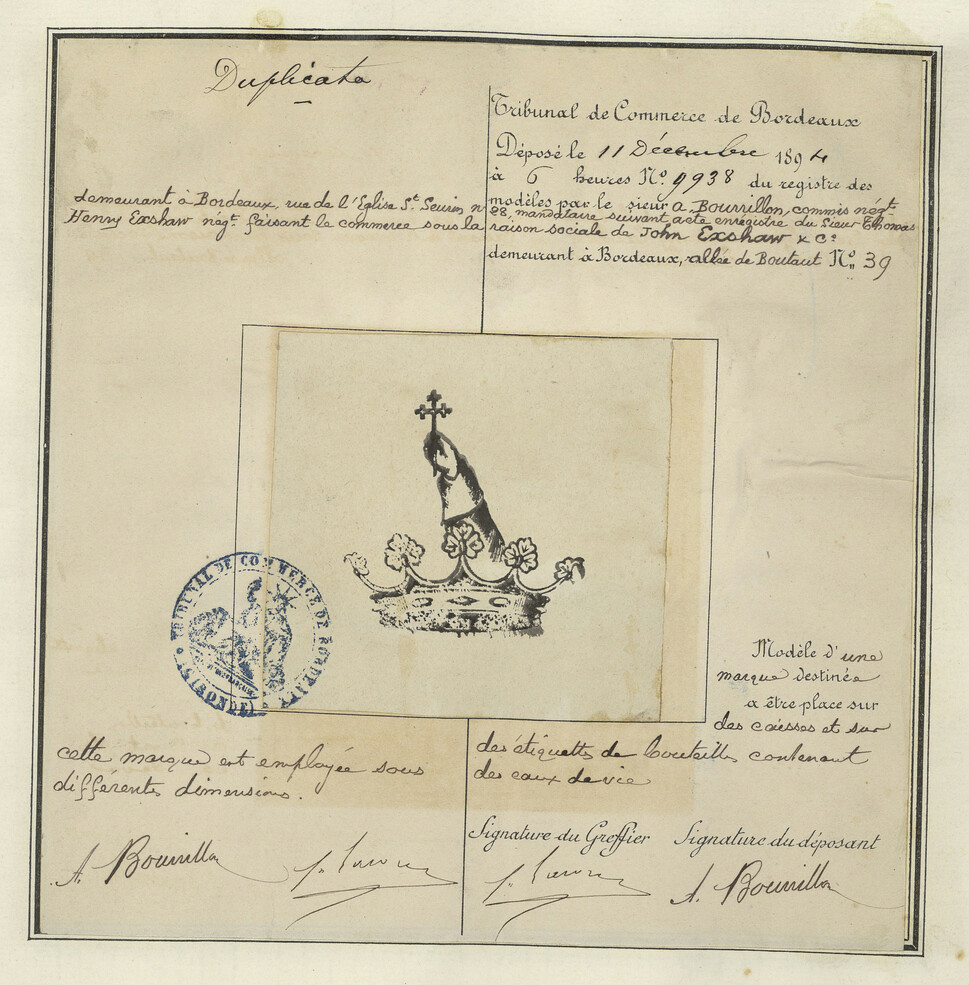 Duplicata
Tribunal de Commerce de Bordeaux
Déposé le 11 Décembre 1894
à 6 heures No. 9938 du registre des
modèles par le sieur A Bourrillon, commis négt.
demeurant à Bordeaux, rue de l'Eglise St. Seurin no
28, mandataire suivant acte enregistré du Sieur Thomas
Henry Exshaw négt. faisant le commerce sous la raison sociale de John Exshaw & Co.
demeurant à Bordeaux, allée de Boutaut No. 39
TRIBUNAL DE COMMERCE DE BORDEAUX
(GIRONDE)
Modèle d'une
marque destinée
a être place sur
des caisses et sur
des étiquettes de bouteilles contenant
des eaux de vie
cette marque est employée sous
différentes dimensions.
Signature du Greffier Signature du déposant
A. Bourrillon
A. Bourrillon